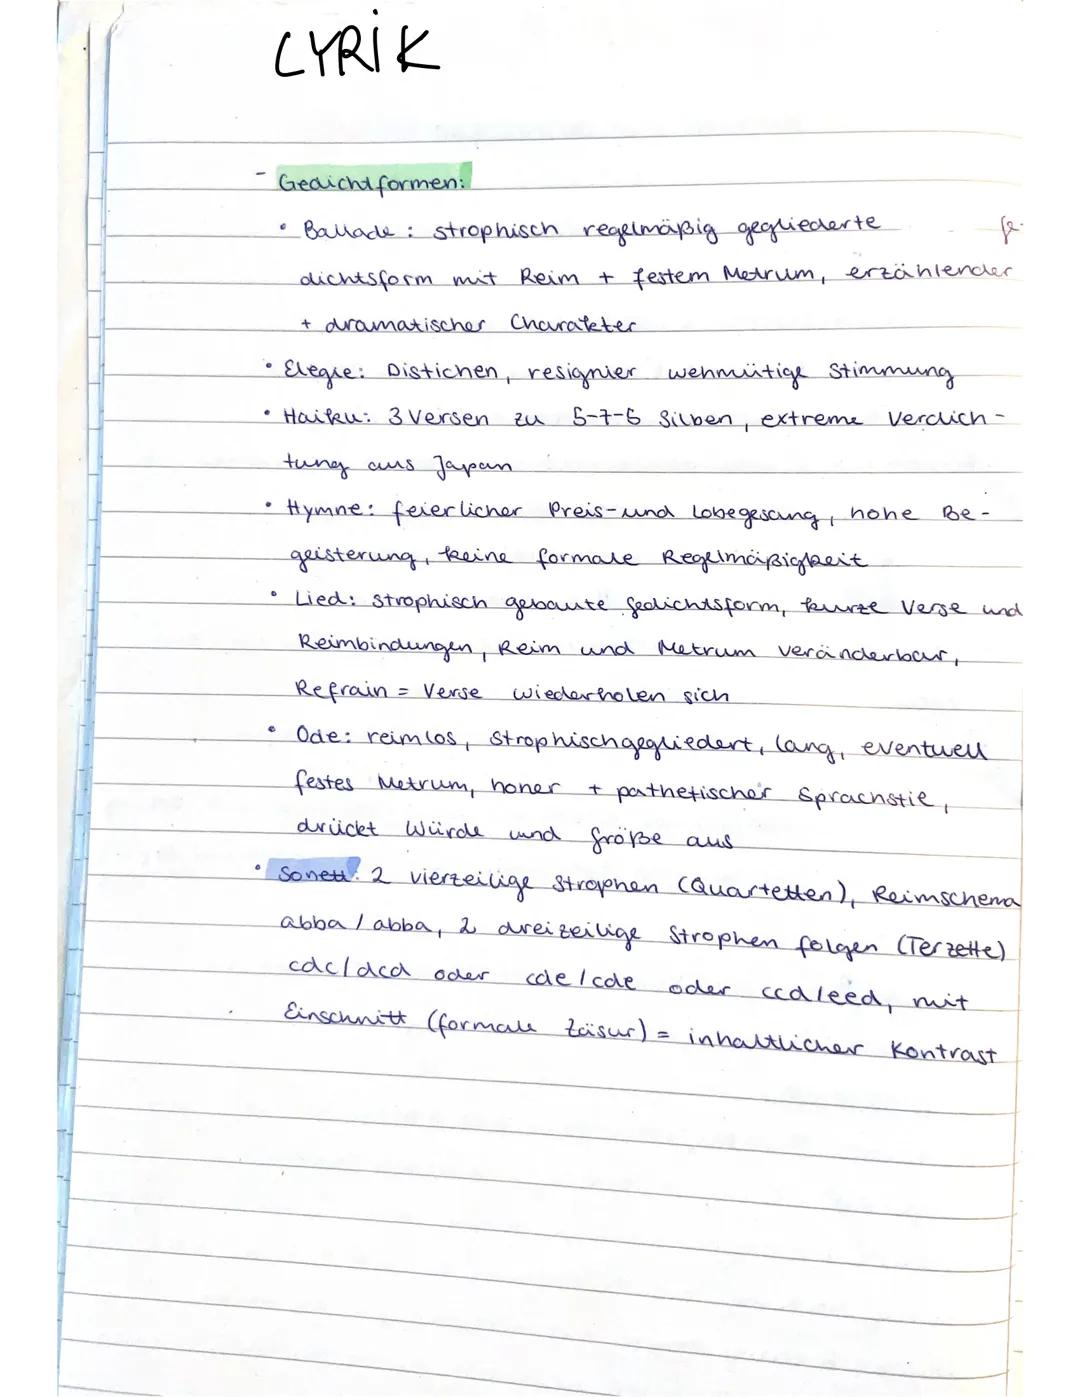 LYRIK
- Gedichtformen:
• Ballade: strophisch regelmäßig gegliederte Ge-
dichtsform mit Reim + festem Metrum, erzählender
+ dramatischer Charakter
• Elegie: Distichen, resignier wehmütige Stimmung
• Haiku: 3 Versen zu 5-7-5 Silben, extreme Verdich-
tung aus Japan
• Hymne: feierlicher Preis- und Lobegesang, hohe Be-
geisterung, keine formale Regelmäßigkeit
• Lied: strophisch gebaute Gedichtsform, kurze Verse und
Reimbindungen, Reim und Metrum veränderbar,
Refrain = Verse wiederholen sich
• Ode: reimlos, strophisch gegliedert, lang, eventuell
festes Metrum, hoher + pathetischer Sprachstil,
drückt Würde und Größe aus
• Sonett: 2 vierzeilige Strophen (Quartetten), Reimschema
abba / abba, 2 dreizeilige Strophen folgen (Terzette)
cdc/dcd oder cde/cde oder ccd/eed, mit
Einschnitt (formale Zäsur) = inhaltlicher Kontrast